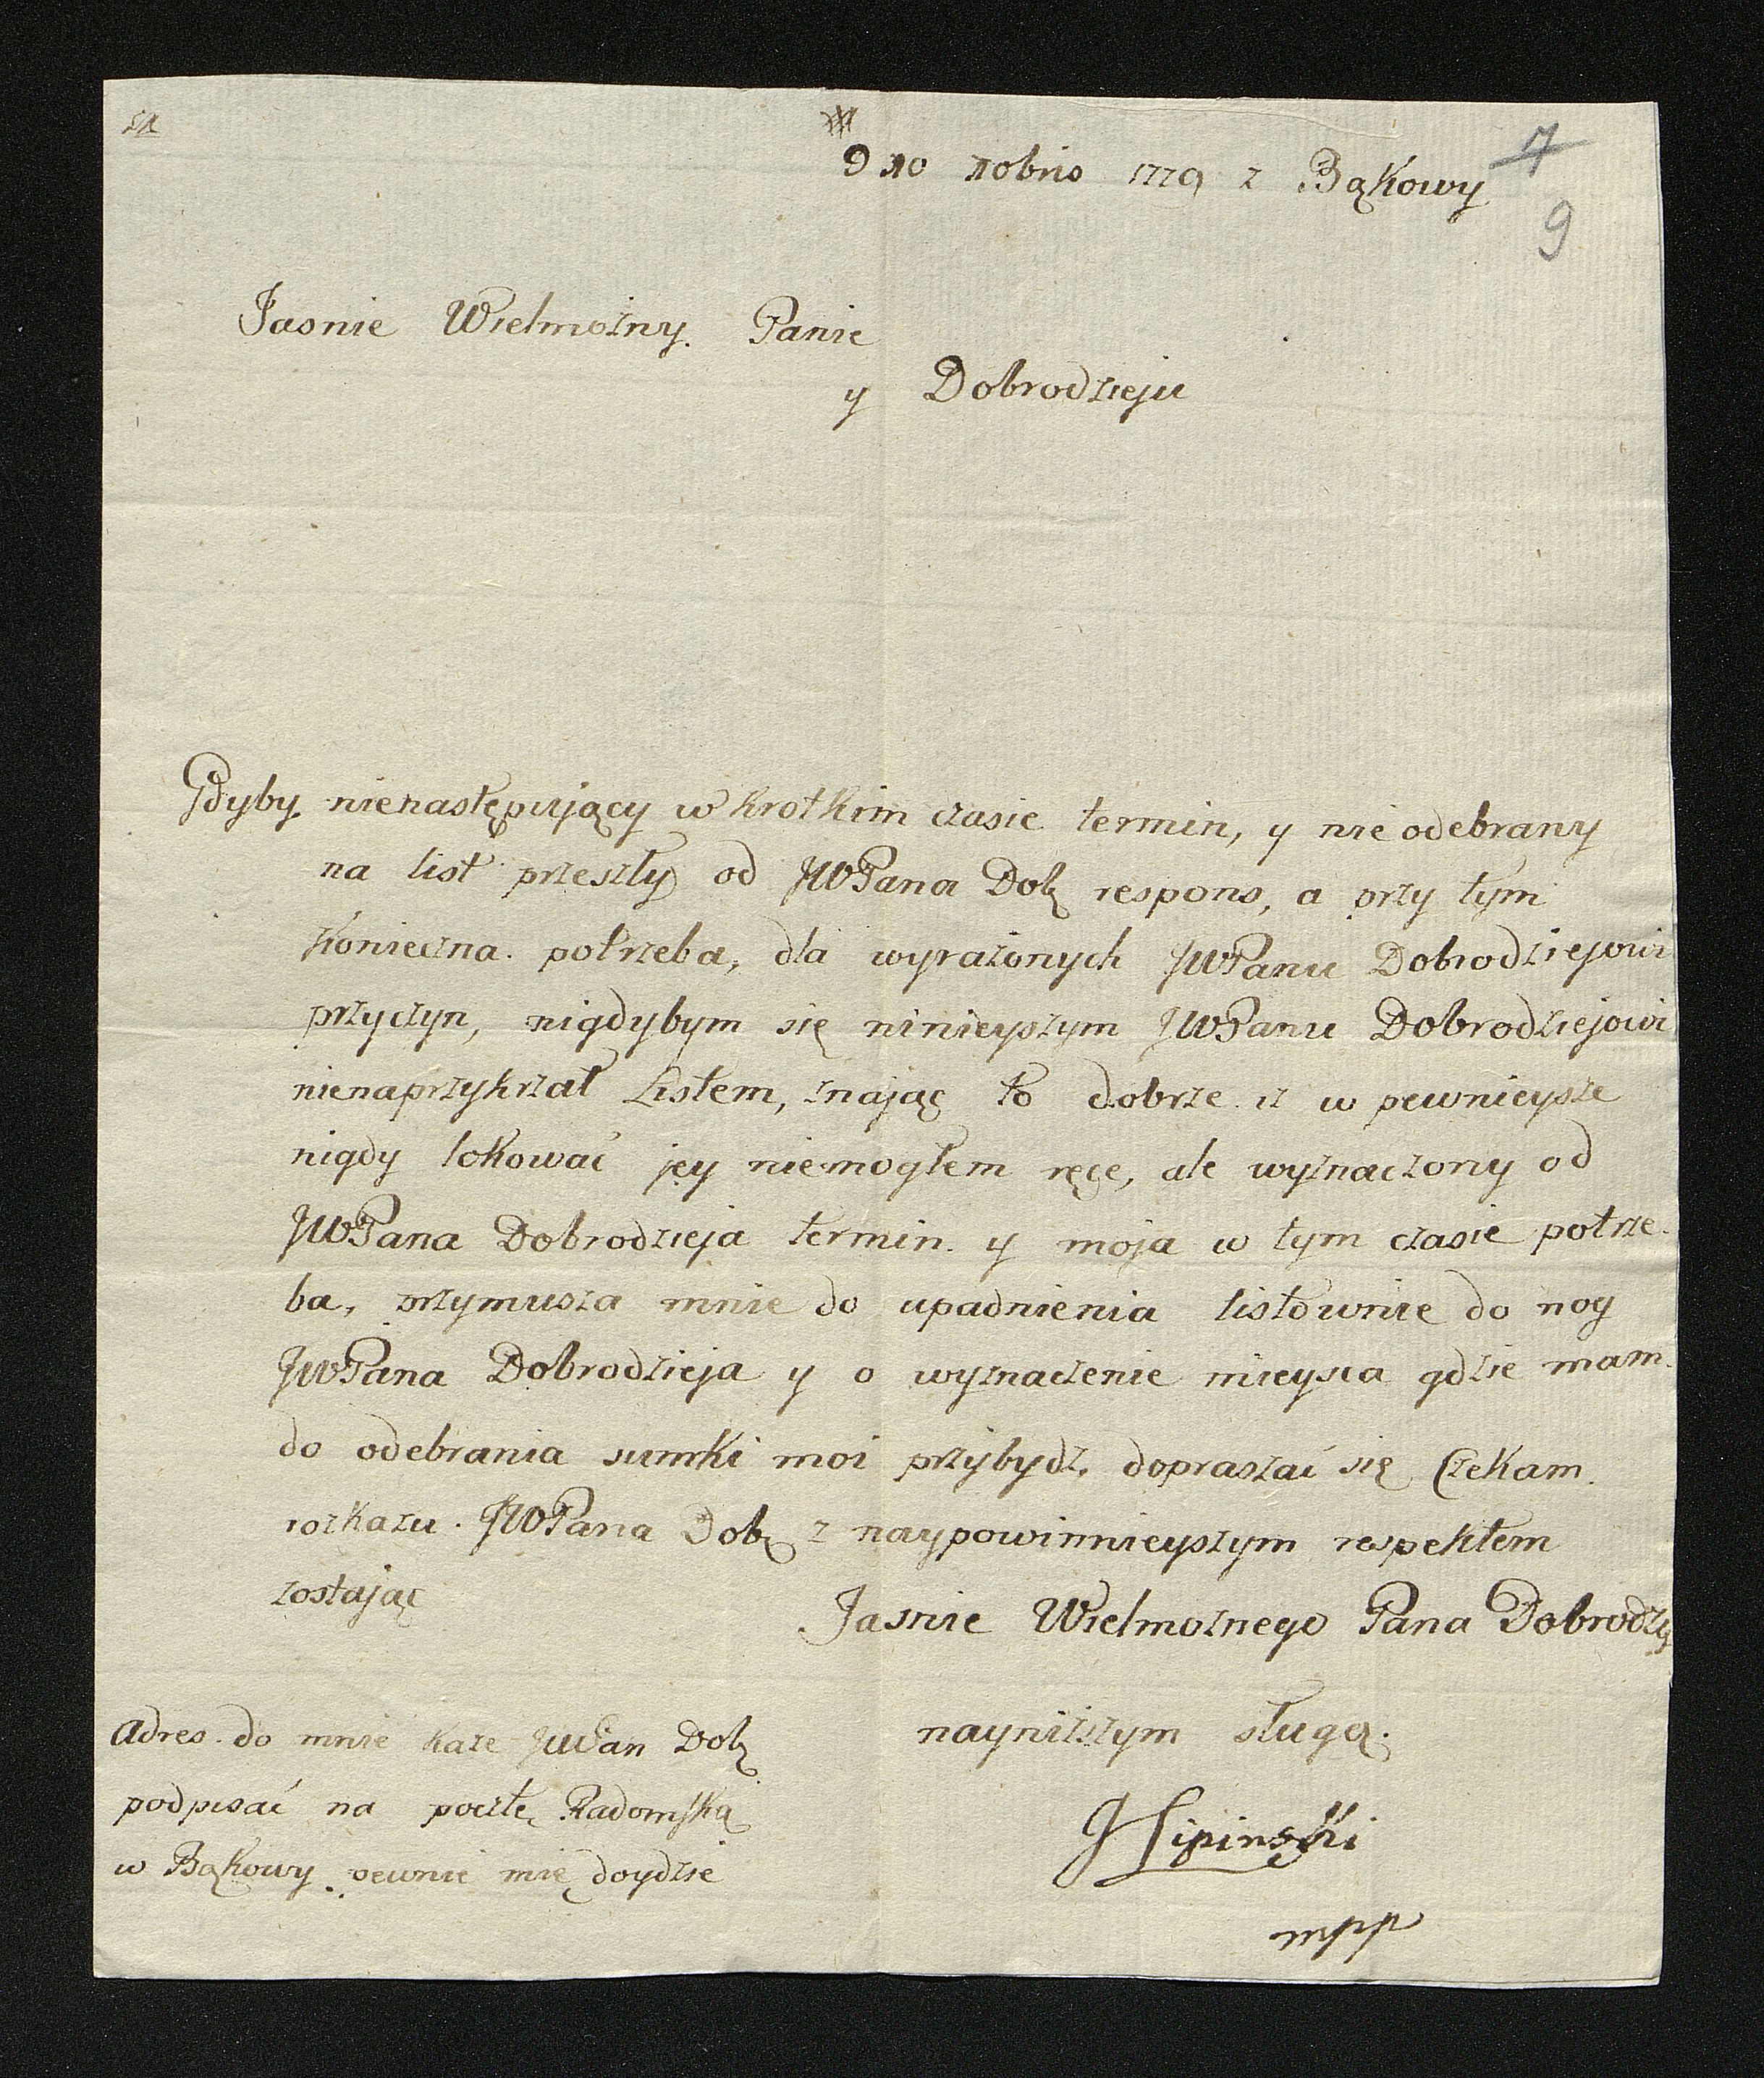 D 10 Xobris 1779 z Bąkowy
7
9
Jasnie Wielmożny Panie
y Dobrodzieju
Gdyby nienastępujący w krotkim czasie termin, y nie odebrany
na list przeszły od JWPana Dob respons, a przy tym
konieczna potrzeba, dla wyrażonych JWPanu Dobrodziejowi
przyczyn, nigdybym się ninieyszym JWPanu Dobrodziejowi
nienaprzykrzał Listem, znając to dobrze iż w pewnieysze
nigdy lokować jey niemogłem ręce, ale wyznaczony od
JWPana Dobrodzieja termin y moja w tym czasie potrze-
ba, przymusza mnie do upadnienia listownie do nog
JWPana Dobrodzieja y o wyznaczenie mieysca gdzie mam
do odebrania sumki moi przybydź, dopraszać się Czekam
rozkazu JWPana Dob z naypowinnieyszym respektem
zostając
Jasnie Wielmoznego Pana Dobrodz
nayniższym sługą.
JLipinski
mpp
Adres do mnie każe JWPan Dob
podpisać na pocztę Radomską
w Bąkowy pewnie mię doydzie